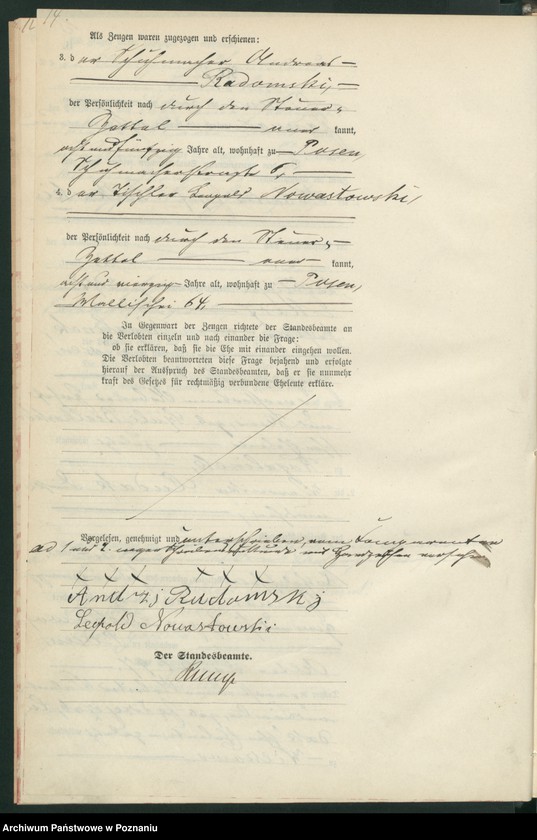 14.
Als Zeugen waren zugezogen und erschienen:
3. der Schuhmacher Andreas
Radomski,
der Persönlichkeit nach durch den Steuer-
Zettel anerkannt,
acht und fünfzig Jahre alt, wohnhaft zu Posen,
Schuhmacherstraße 6,
4. der Tischler Leopold Nowastowski,
der Persönlichkeit nach durch den Steuer-
Zettel anerkannt,
acht und vierzig Jahre alt, wohnhaft zu Posen,
Wallischei 64.
In Gegenwart der Zeugen richtete der Standesbeamte an
die Verlobten einzeln und nach einander die Frage:
ob sie erklären, daß sie die Ehe mit einander eingehen wollen.
Die Verlobten beantworteten diese Frage bejahend und erfolgte
hierauf der Ausspruch des Standesbeamten, daß er sie nunmehr
kraft des Gesetzes für rechtmäßig verbundene Eheleute erkläre.
Vorgelesen, genehmigt und unterschrieben, vom Comparenten
ad 1 und 2. wegen Schreibensunkunde mit Handzeichen versehen
X X X X X X
Andrzj Radomskj
Leopold Nowastowski
Der Standesbeamte.
Archiwum Państwowe w Poznaniu